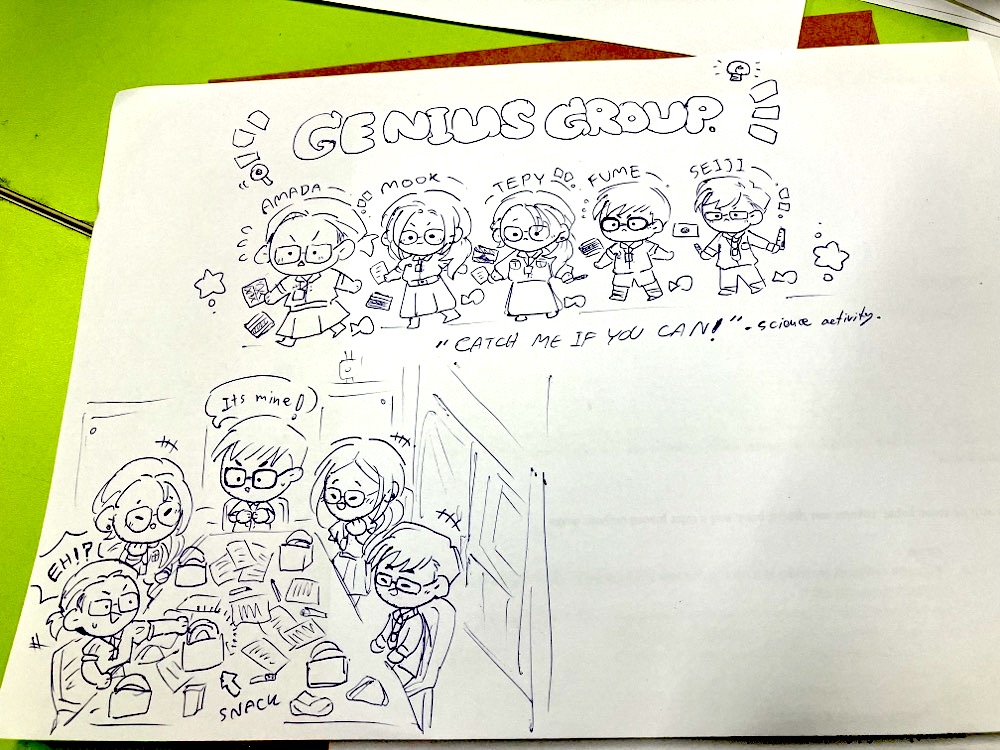 GENIUS GROUP.
AMADA
MOOK
TEPY
FUME
SEIJI
"CATCH ME IF YOU CAN!" - science activity.
Its mine!
EH!?
SNACK